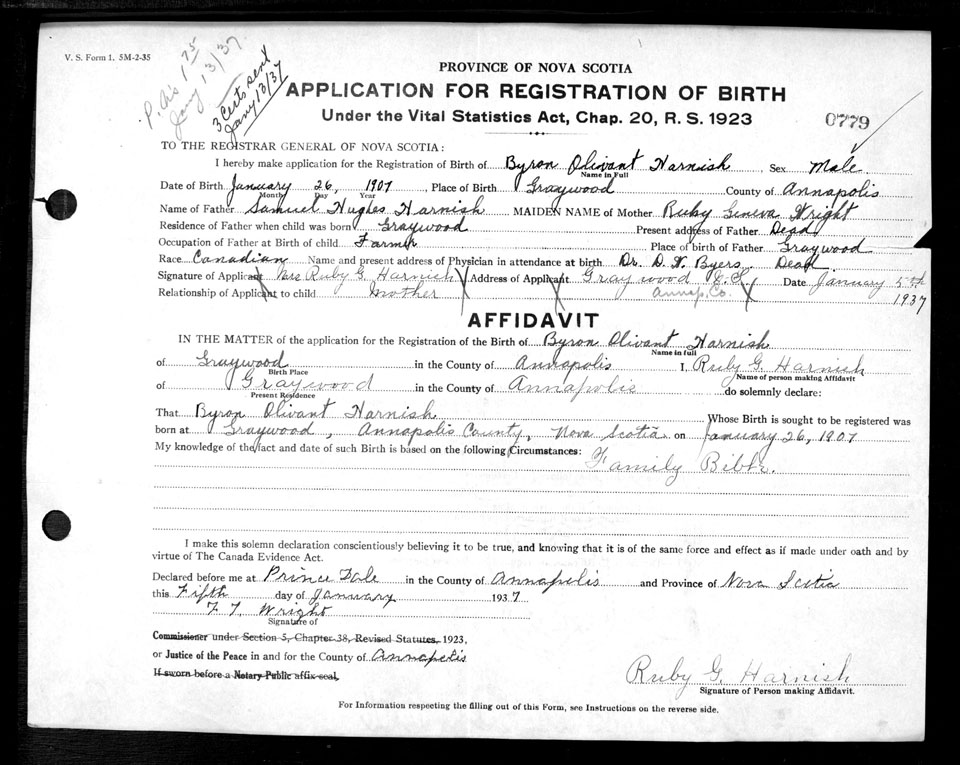 V. S. Form 1. 5M-2-35
Jany 13/37
3 Certs sent
Jany 13/37
PROVINCE OF NOVA SCOTIA
APPLICATION FOR REGISTRATION OF BIRTH
Under the Vital Statistics Act, Chap. 20, R. S. 1923
0779
TO THE REGISTRAR GENERAL OF NOVA SCOTIA:
I hereby make application for the Registration of Birth of Byron Olivant Harnish Sex Male
Name in Full
Date of Birth January 26, 1907, Place of Birth Graywood County of Annapolis
Month Day Year
Name of Father Samuel Hughes Harnish MAIDEN NAME of Mother Ruby Geneva Wright
Residence of Father when child was born Graywood Present address of Father Dead
Occupation of Father at Birth of child Farmer Place of birth of Father Graywood
Race Canadian Name and present address of Physician in attendance at birth Dr. D. W. Byers, Dead
Signature of Applicant Mrs Ruby G. Harnish Address of Applicant Graywood Date January 5th
Relationship of Applicant to child Mother Annap. Co. 1937
AFFIDAVIT
IN THE MATTER of the application for the Registration of the Birth of Byron Olivant Harnish
Name in full
of Graywood in the County of Annapolis I, Ruby G. Harnish
Birth Place Name of person making Affidavit
of Graywood in the County of Annapolis do solemnly declare:
Present Residence
That Byron Olivant Harnish Whose Birth is sought to be registered was
born at Graywood, Annapolis County, Nova Scotia on January 26, 1907
My knowledge of the fact and date of such Birth is based on the following Circumstances: Family Bible.
I make this solemn declaration conscientiously believing it to be true, and knowing that it is of the same force and effect as if made under oath and by
virtue of The Canada Evidence Act.
Declared before me at Prince Dale in the County of Annapolis and Province of Nova Scotia
this Fifth day of January 1937
F. T. Wright
Signature of
Commissioner under Section 5, Chapter 38, Revised Statutes, 1923,
or Justice of the Peace in and for the County of Annapolis
If sworn before a Notary Public affix seal.
Ruby G. Harnish
Signature of Person making Affidavit.
For Information respecting the filling out of this Form, see Instructions on the reverse side.